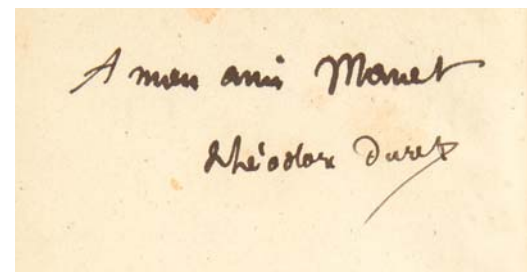 A mon ami Manet
Théodore Duret